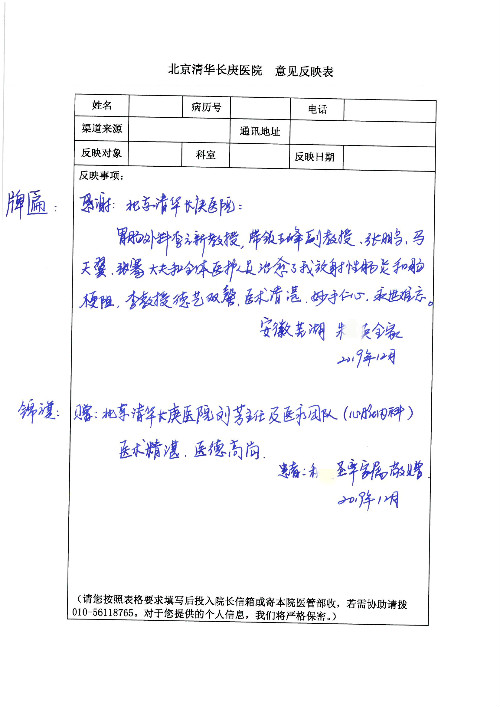 北京清华长庚医院 意见反映表
姓名 病历号 电话
渠道来源 通讯地址
反映对象 科室 反映日期
反映事项：
牌匾： 感谢：北京清华长庚医院：
胃肠外科李元新教授，带领王峰副教授、张鹏、马
天翼、大夫和全体医护人员治愈了我放射性肠炎和肠
梗阻，李教授德艺双馨，医术精湛，妙手仁心，永世难忘。
安徽芜湖 朱 全家
2019年12月
锦旗： 赠：北京清华长庚医院刘芳主任及医疗团队（心脏内科）
医术精湛，医德高尚。
患者：家属敬赠
2019年12月
（请您按照表格要求填写后投入院长信箱或寄本院医管部收，若需协助请拨
010-56118765，对于您提供的个人信息，我们将严格保密。）